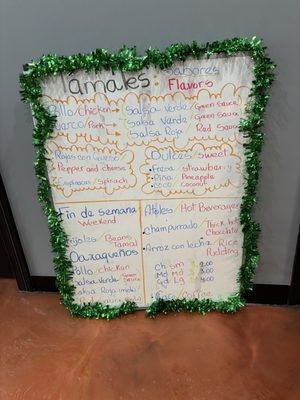 Tamales: Sabores
Flavors
Pollo/Chicken Salsa Verde/Green Sauce
Puerco/Pork Salsa Verde/Green Sauce
Salsa Rojo Red Sauce
Rajas con Queso
Pepper and cheese
Espinacas/Spinach
Dulces/Sweet
Fresa strawberry
Piña Pineapple
Coco coconut
Fin de semana
Weekend
Frijoles/Beans
Tamal
Oaxaqueños
Pollo/Chicken
Salsa Verde/Green Sauce
Salsa Roja
Atoles/Hot Beverages
Champurrado/Thick hot
Chocolate
Arroz con leche/Rice
Pudding
Ch sm
Md Md 3.00
Gd Lg